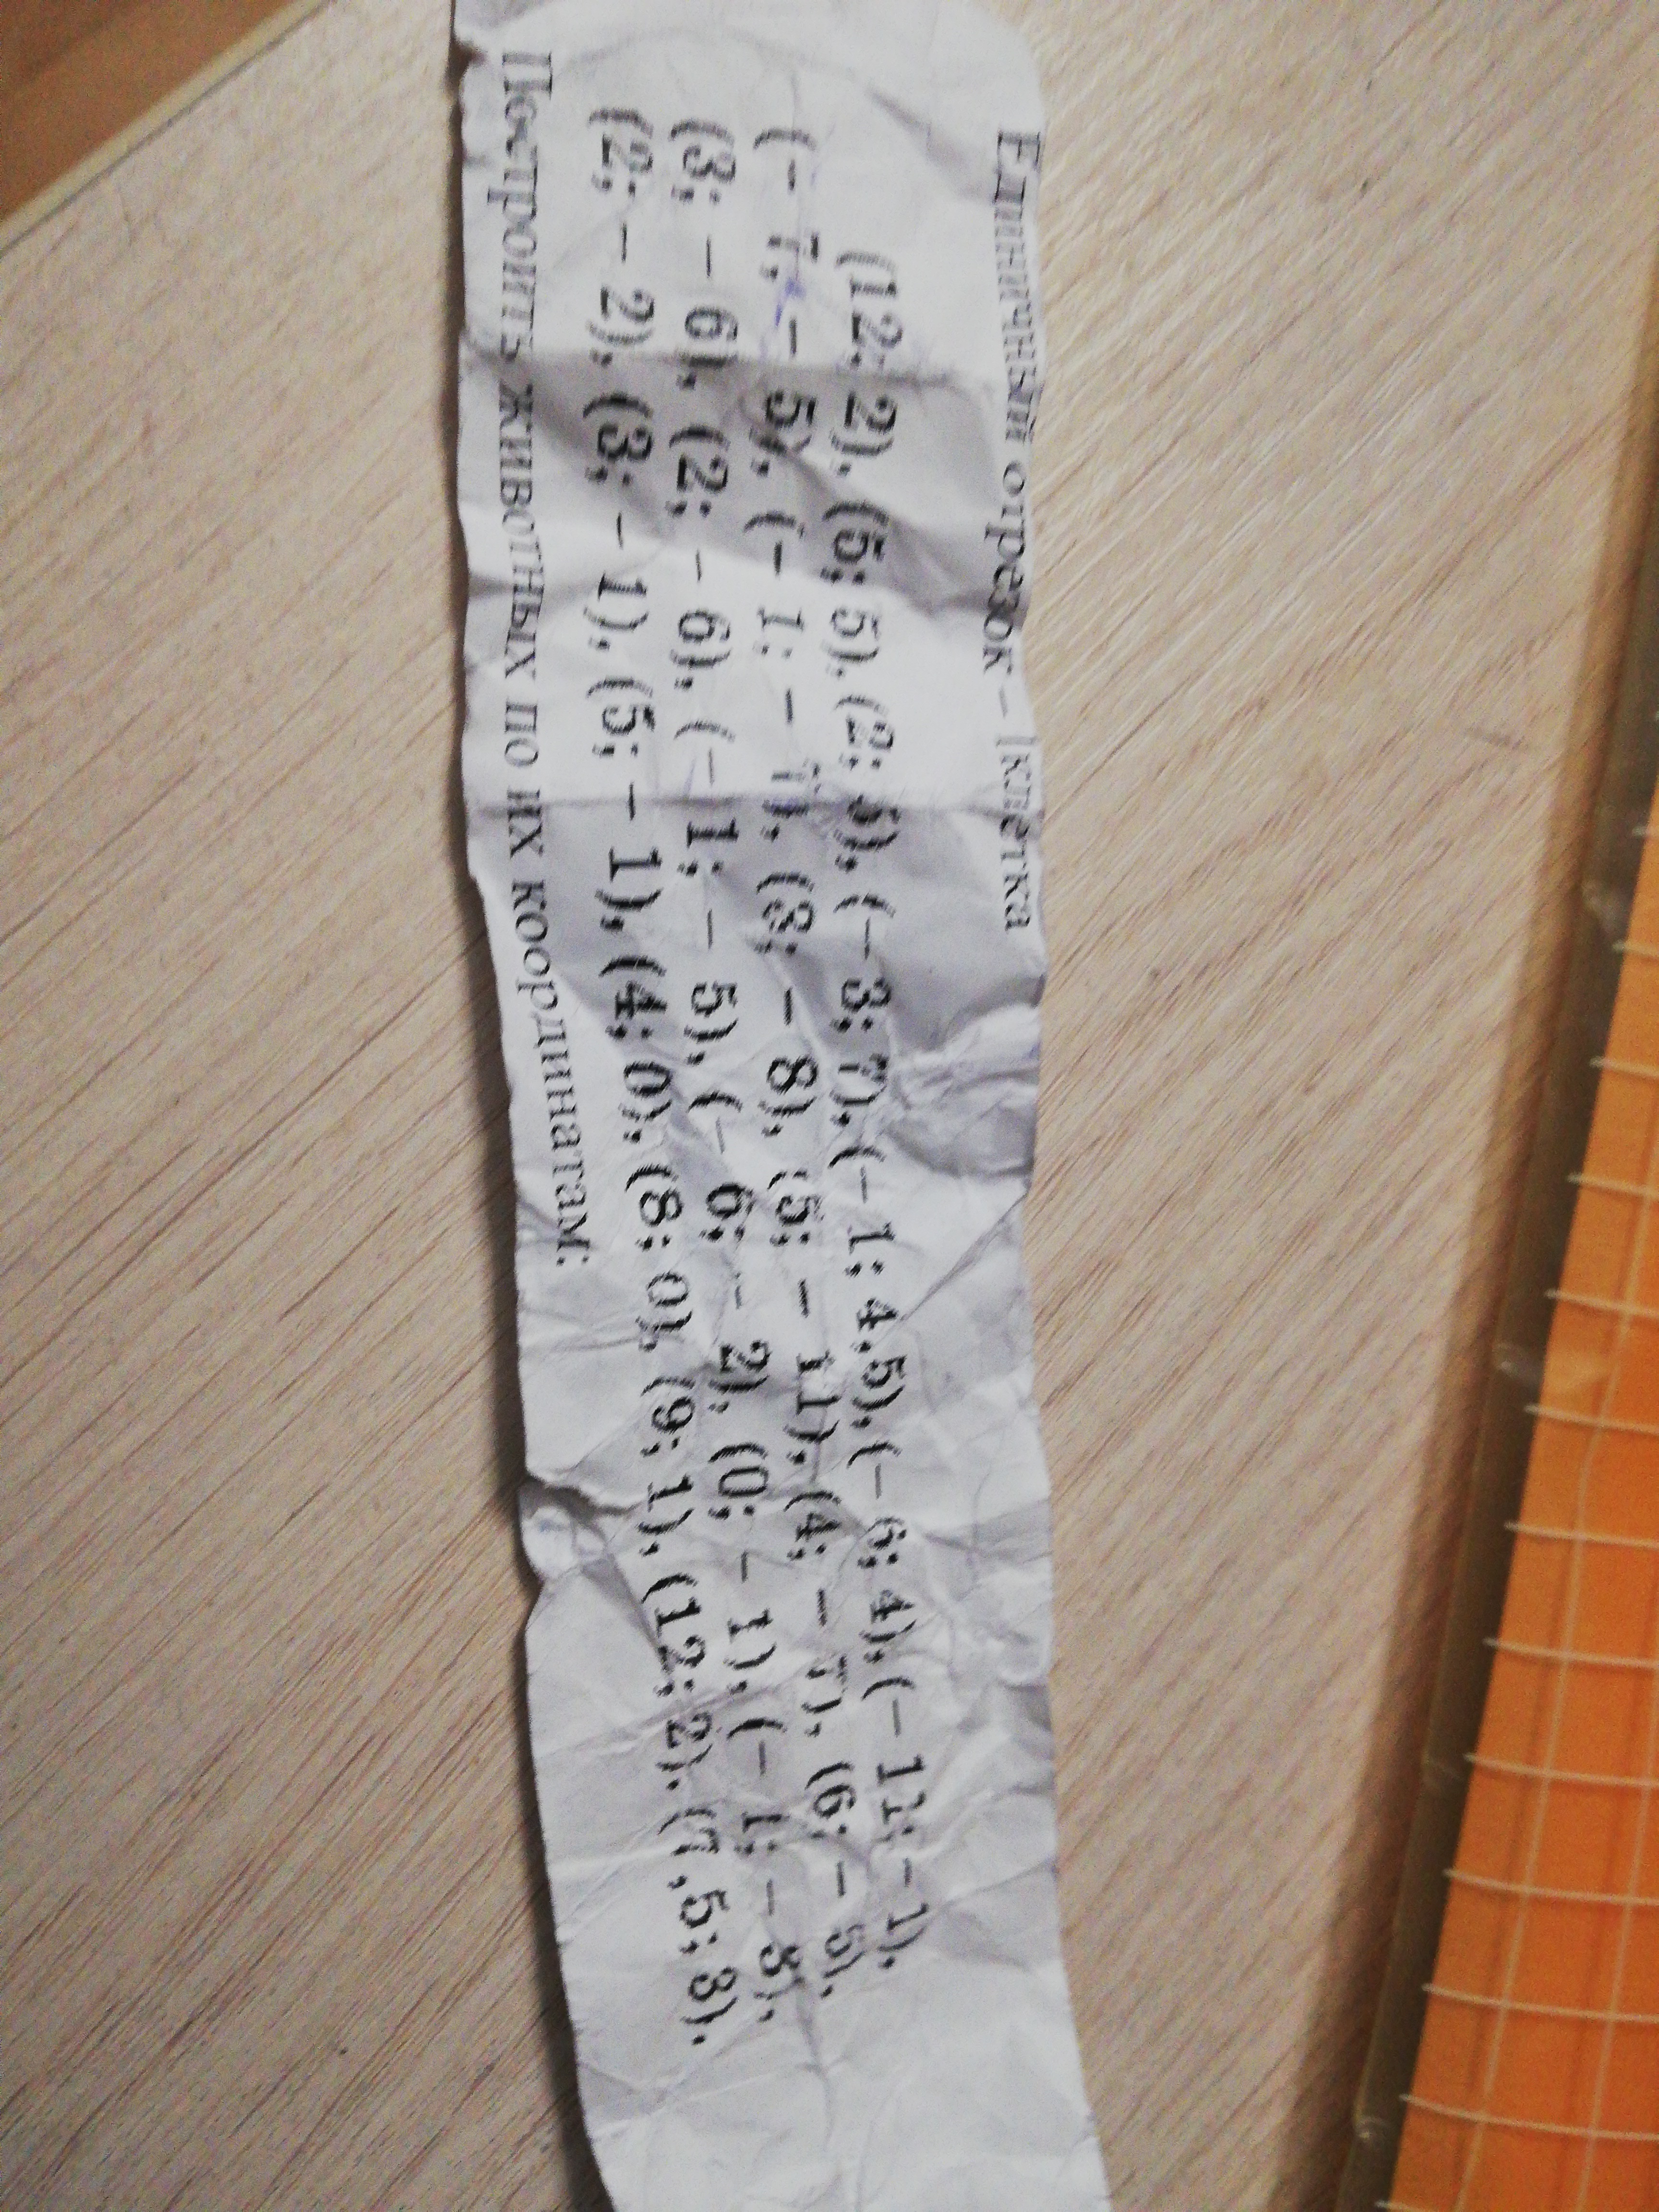 Единичный отрезок – 1клетка
(12; 2), (5; 5), (2; (– 3; 7), (– 1; 4,5), (– 6; 4), (– 11; – 1),
(– 7; – 5), (– 1; – 7), (8; – 8), (5; – 11), (4; – 7), (6; – 5),
(3; – 6), (2; – 6), (– 1; – 5), (– 6; – 2), (0; – 1), (– 1; – 3),
(2; – 2), (3; – 1), (5; – 1), (4; 0), (8; 0), (9; 1), (12; 2), (7,5; 3).
Построить животных по их координатам: